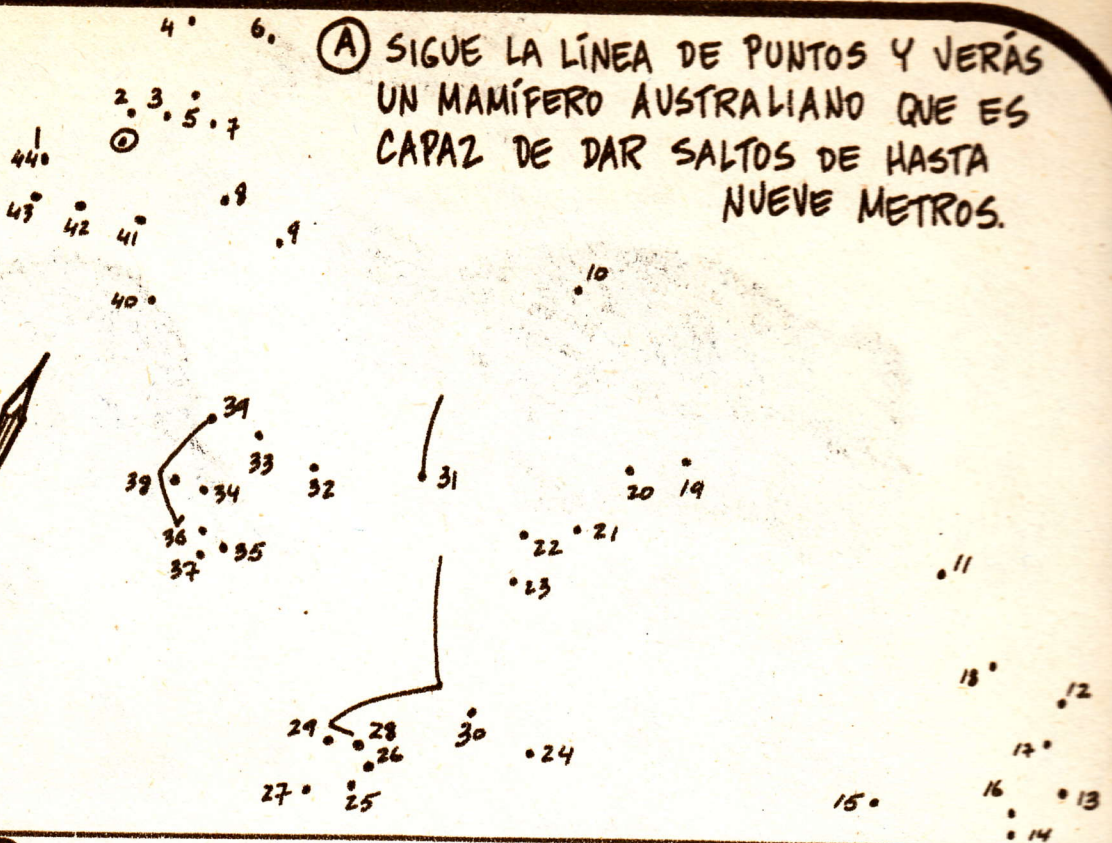 Ⓐ SIGUE LA LÍNEA DE PUNTOS Y VERÁS
UN MAMÍFERO AUSTRALIANO QUE ES
CAPAZ DE DAR SALTOS DE HASTA
NUEVE METROS.
4 6
2 3 5 7
1
44
43 42 41 8
9
40 10
39
33
38 34 32 31 20 19
36 22 21
37 35
23 11
18 12
29 28 30
26 24 17
27 25 15 16 13
14